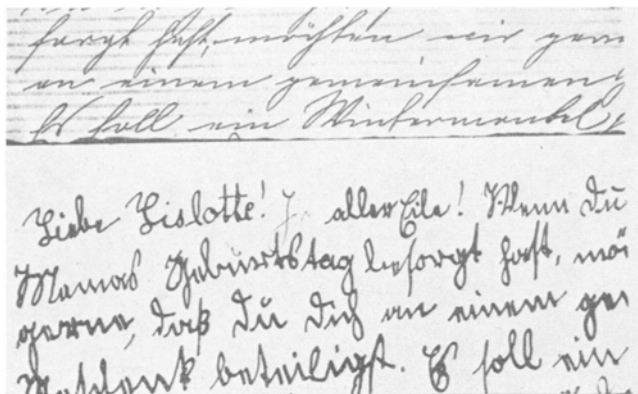 sorgt hast, möchten wir gern
an einem gemeinsamen
Es soll ein Wintermantel,
Liebe Lislotte! In aller Eile! Wenn Du
Mamas Geburtstag besorgt hast, mö
gerne, daß Du Dich an einem ge
beteiligst. Es soll ein